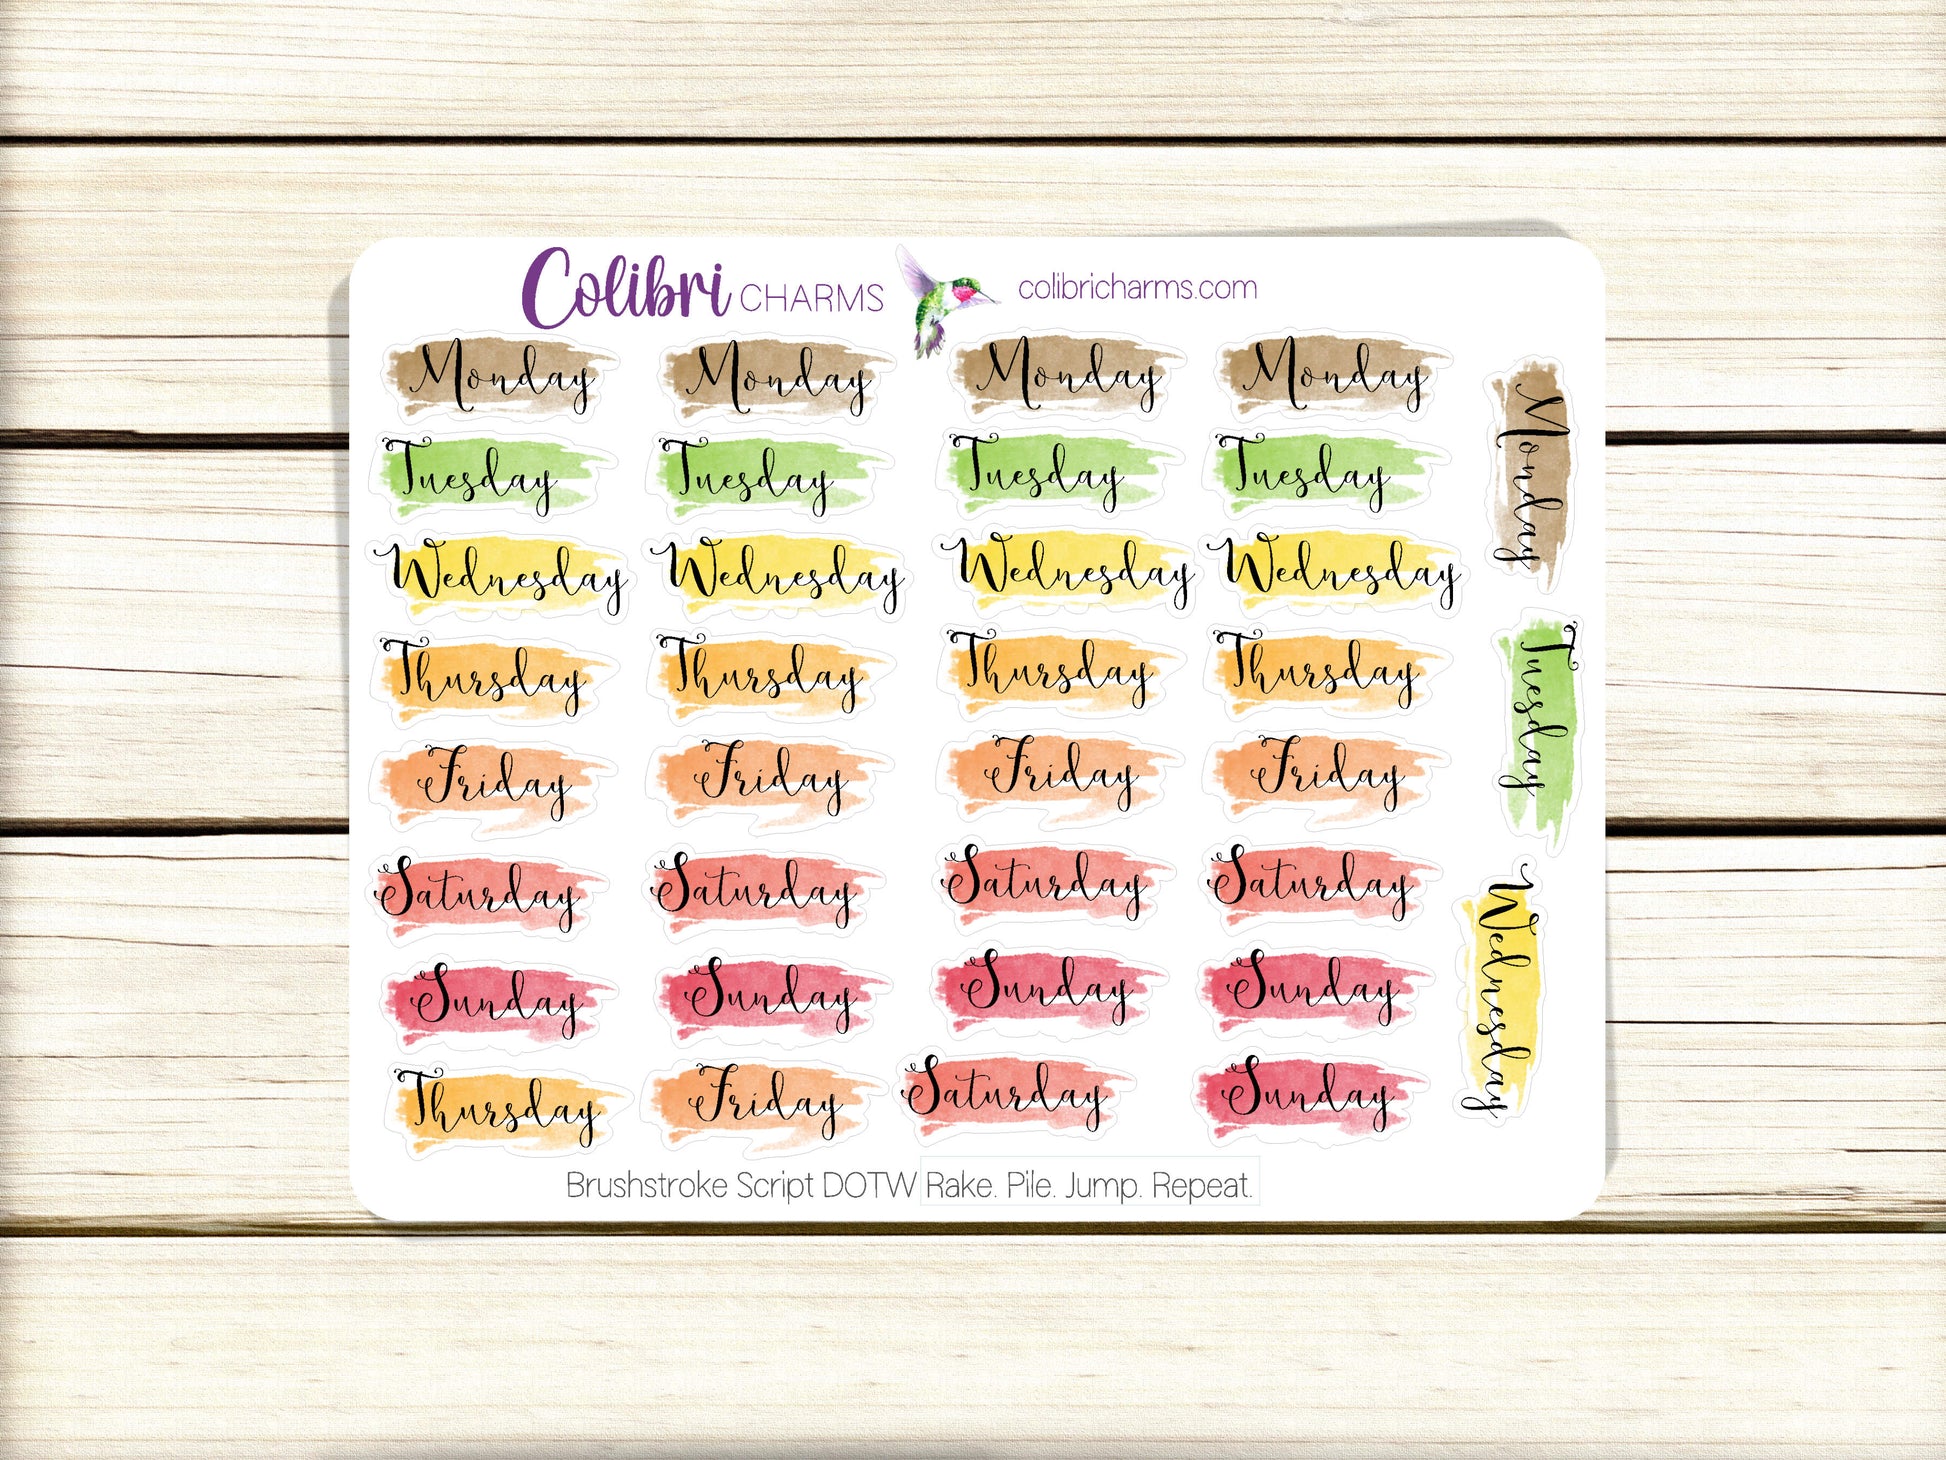 Colibri CHARMS colibricharms.com
Monday Monday Monday Monday
Tuesday Tuesday Tuesday Tuesday
Wednesday Wednesday Wednesday Wednesday
Thursday Thursday Thursday Thursday
Friday Friday Friday Friday
Saturday Saturday Saturday Saturday
Sunday Sunday Sunday Sunday
Thursday Friday Saturday Sunday
Monday
Tuesday
Wednesday
Brushstroke Script DOTW Rake. Pile. Jump. Repeat.